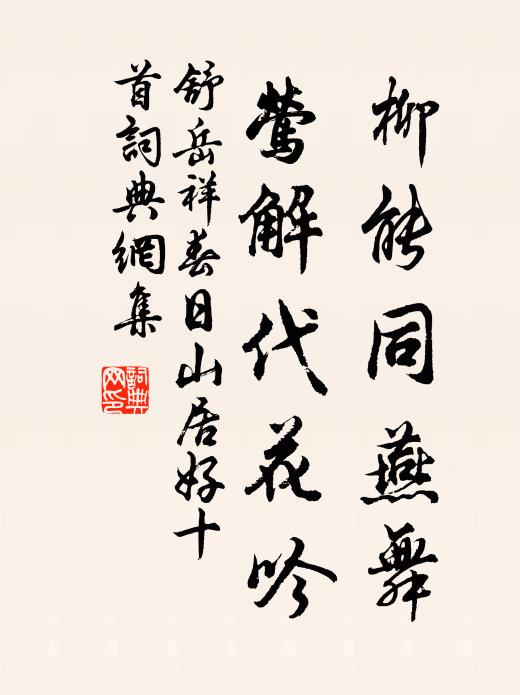 柳能同燕舞
鶯解代花吟
舒岳祥春日山居好十
首詞典網集
詞典網印